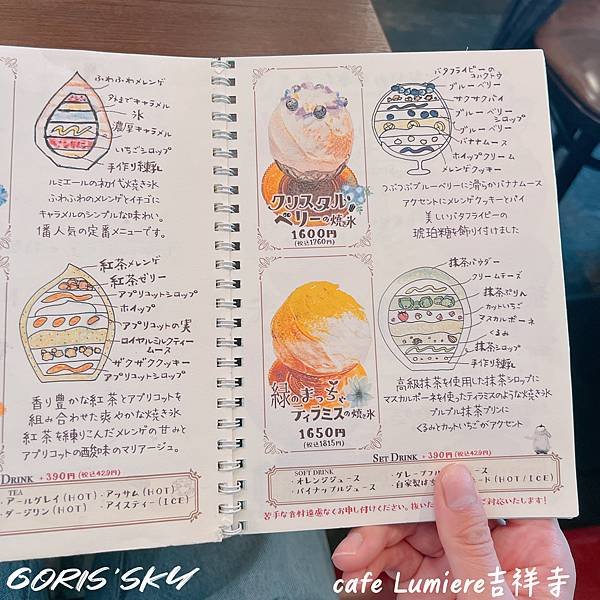 ふわふわメレンゲ
氷
濃厚キャラメル
いちごシロップ
手作り練乳
ルミエールの初代焼き氷
ふわふわのメレンゲとイチゴに
キャラメルのシンプルな味わい。
1番人気の定番メニューです。
紅茶メレンゲ
紅茶ゼリー
アプリコットシロップ
ホイップ
アプリコットの実
ロイヤルミルクティー
ムース
ザクザククッキー
アプリコットシロップ
香り豊かな紅茶とアプリコットを
組み合わせた爽やかな焼き氷
紅茶を練りこんだメレンゲの甘みと
アプリコットの酸味のマリアージュ。
DRINK +390円(税込429円)
TEA
アールグレイ(HOT)・アッサム(HOT)
・ダージリン(HOT)・アイスティー(ICE)
クリスタル
ベリーの焼き氷
1600円
(税込1760円)
バタフライピーの
ブルーベリー
サクサクパイ
ブルーベリー
シロップ
ブルーベリー
バナナムース
ホイップクリーム
メレンゲクッキー
つぶつぶブルーベリーに滑らかバナナムース
アクセントにメレンゲクッキーとパイ
美しいバタフライピーの
琥珀糖を飾り付けました
緑のまっちゃ
ティラミスの焼き氷
1650円
(税込1815円)
抹茶パウダー
クリームチーズ
抹茶ぷりん
カットいちご
マスカルポーネ
くるみ
抹茶シロップ
手作り練乳
高級抹茶を使用した抹茶シロップに
マスカルポーネを使ったティラミスのような焼き氷
プルプル抹茶プリンに
くるみとカットいちごがアクセント
SET DRINK +390円(税込429円)
SOFT DRINK
・オレンジジュース
・パイナップルジュース
・グレープフル ース
・自家製は ード(HOT/ICE)
苦手な食材遠慮なくお申し付けください。抜いた ご対応いたします!
GORIS'SKY
cafe Lumiere吉祥寺